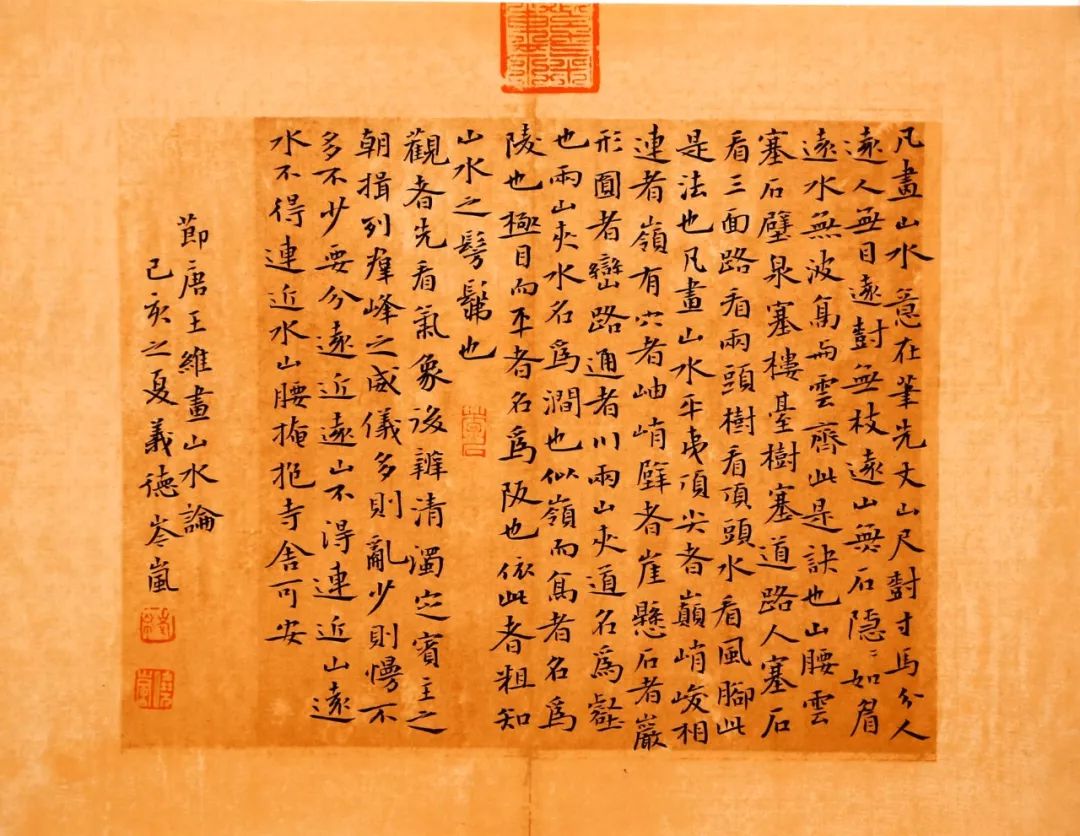 凡畫山水意在筆先丈山尺尌寸馬分人
遠人無目遠尌無枝遠山無石隱〻如眉
遠水無波高与雲齊此是訣也山腰雲
塞石壁泉塞樓臺樹塞道路人塞石
看三面路看兩頭樹看頂頭水看風腳此
是法也凡畫山水平夷頂尖者巔峭峻相
連者嶺有穴者岫峭壁者崖懸石者巖
形圓者巒路通者川兩山夾道名為壑
也兩山夾水名為澗也似嶺而高者名為
陵也極目而平者名為阪也依此者粗知
山水之髣髴也
觀者先看氣象後辨清濁定賓主之
朝揖列羣峰之威儀多則亂少則慢不
多不少要分遠近遠山不得連近山遠
水不得連近水山腰掩抱寺舍可安
節唐王維畫山水論
己亥之夏義德岑嵐